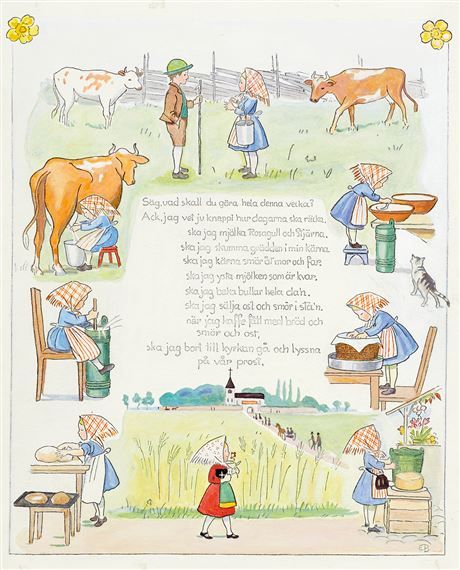 Säg, vad skall du göra hela denna vecka?
Ack, jag vet ju knappt hur dagarna ska räcka,
ska jag mjölka Rosagull och Stjärna,
ska jag skumma grädden i min kärna
ska jag kärna smör åt mor och far,
ska jag ysta mjölken som är kvar,
ska jag baka bullar hela da'n,
ska jag sälja ost och smör i sta'n,
när jag kaffe fått med bröd och
smör och ost,
ska jag bort till kyrkan gå och lyssna
på vår prost.
EB